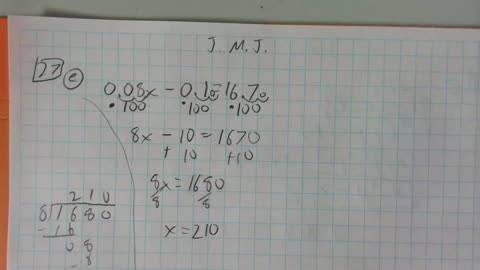 J. M. J.
27 e
0.08x - 0.10 = 16.70
·100 ·100 ·100
8x - 10 = 1670
+ 10 +10
8x = 1680
8 8
x = 210
210
8 1680
- 16
08
- 8